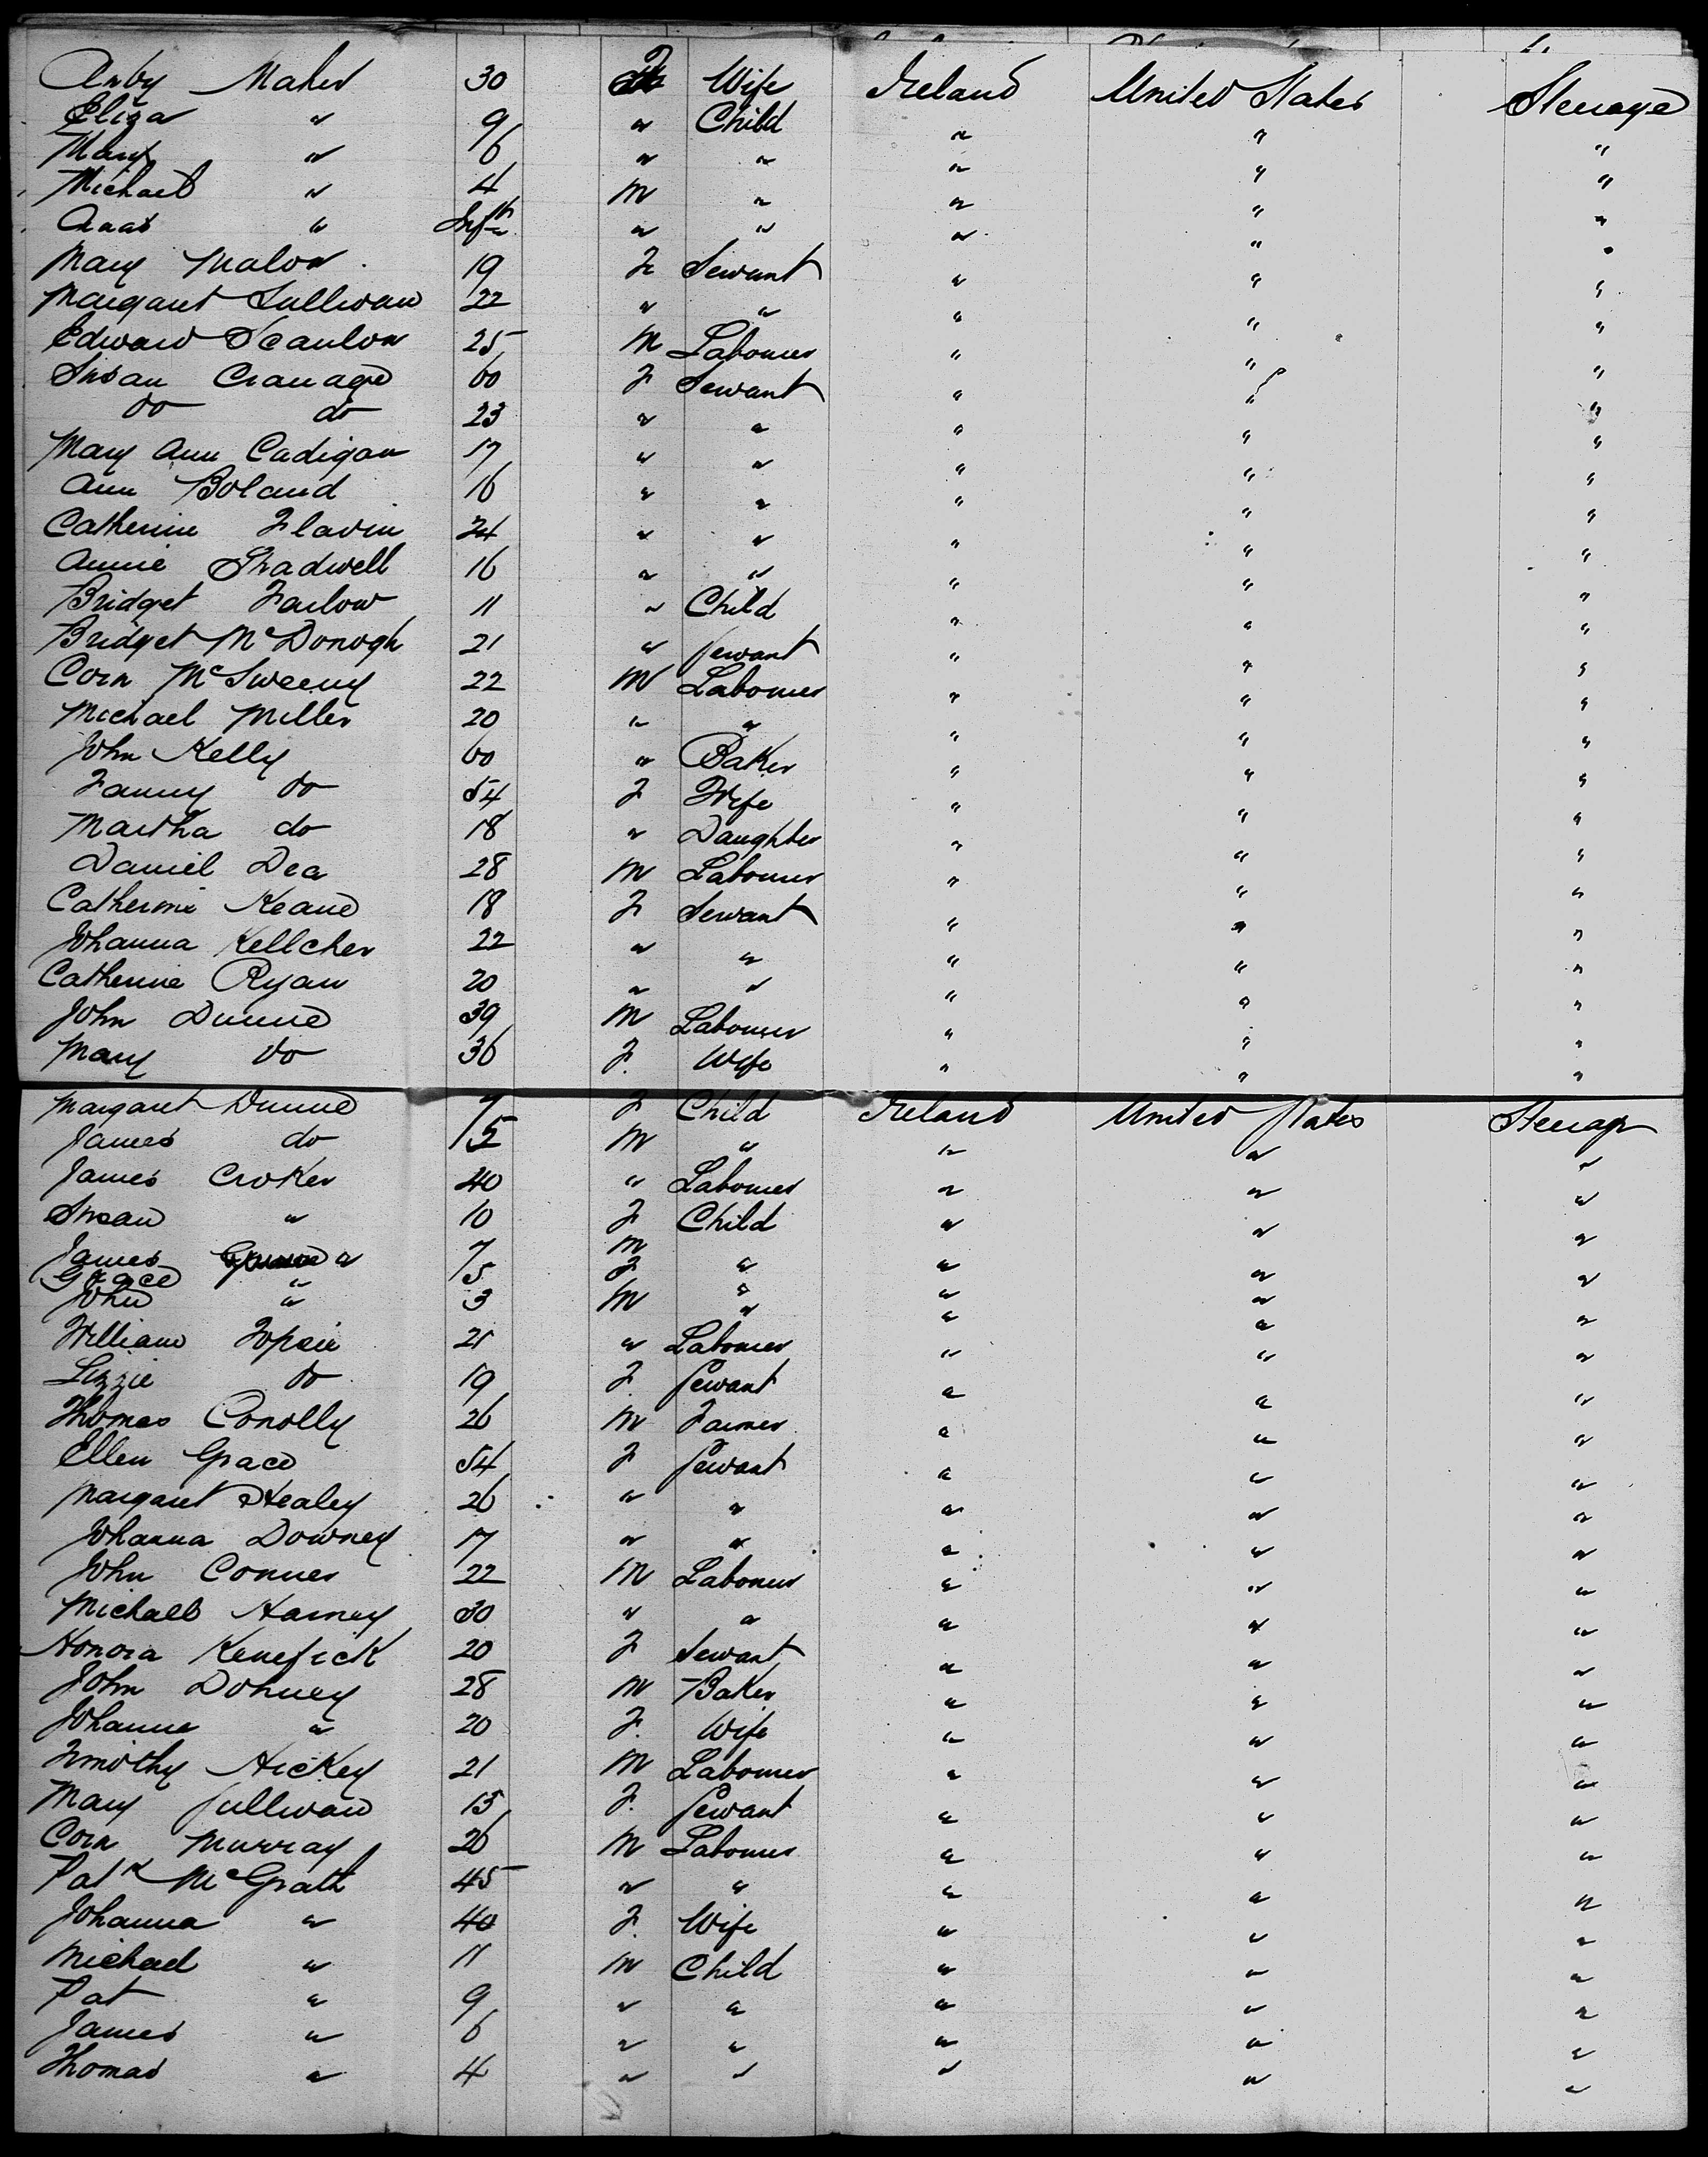 Anby Maher 30 F Wife Ireland United States Steerage
Eliza " 9 " Child " " "
Mary " 6 " " " " "
Michael " 4 M " " " "
" Inft " " " " "
Mary Malon 19 F Servant " " "
Margaret Sullivan 22 " " " " "
Edward Scanlon 25 M Labourer " " "
Susan Cranage 60 F Servant " " "
do do 23 " " " " "
Mary Ann Cadigan 17 " " " " "
Ann Boland 16 " " " " "
Catherine Flavin 24 " " " " "
Annie Shadwell 16 " " " " "
Bridget Farlow 11 " Child " " "
Bridget McDonogh 21 " Servant " " "
Corn McSweeny 22 M Labourer " " "
Michael Miller 20 " " " " "
John Kelly 60 " Baker " " "
Fanny do 54 F Wife " " "
Martha do 18 " Daughter " " "
Daniel Dea 28 M Labourer " " "
Catherine Keane 18 F Servant " " "
Johanna Kellcher 22 " " " " "
Catherine Ryan 20 " " " " "
John Dunne 39 M Labourer " " "
Mary do 36 F. Wife " " "
Margaret Dunne 7 F Child Ireland United States Steerage
James do 5 M " " " "
James Croker 40 " Labourer " " "
Susan " 10 F Child " " "
James " 7 M " " " "
Grace " 5 F " " " "
John " 3 M " " " "
William 21 " Labourer " " "
Lizzie do 19 F. Servant " " "
Thomas Conolly 26 M Farmer " " "
Ellen Grace 54 F Servant " " "
Margaret Healey 26 " " " " "
Johanna Downey 17 " " " " "
John Conner 22 M Labourer " " "
Michael Harney 30 " " " " "
Honora Kenefick 20 F Servant " " "
John Dohney 28 M Baker " " "
Johanna " 20 F. Wife " " "
Timothy Hickey 21 M Labourer " " "
Mary Sullivan 15 F. Servant " " "
Corn Murray 26 M Labourer " " "
Patk McGrath 45 " " " " "
Johanna " 40 F. Wife " " "
Michael " 11 M Child " " "
Pat " 9 " " " " "
James " 6 " " " " "
Thomas " 4 " " " " "